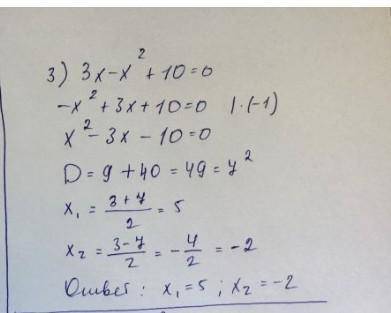 3) 3x-x²+10=0
-x²+3x+10=0 |·(-1)
x²-3x-10=0
D=9+40=49=7²
x₁=(3+7)/2=5
x₂=(3-7)/2=-4/2=-2
Ответ: x₁=5; x₂=-2